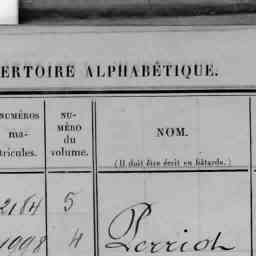 ERTOIRE ALPHABÉTIQUE.
NUMÉROS
ma-
tricules.
NU-
MÉRO
du
volume.
NOM.
(Il doit être écrit en bâtarde.)
2184 5
1998 4 Perrioh